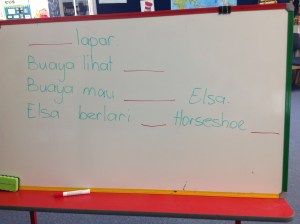 _____ lapar
Buaya lihat _____
Buaya mau _____ Elsa.
Elsa berlari ___ Horseshoe ___